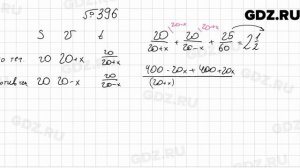 GDZ.RU
№396
S V t
по теч. 20 20+x 20/(20+x)
20 20-x 20/(20-x)
20/(20+x) + 20/(20-x) + 25/60 = 2 1/2
20-x
20+x
400 - 20x + 400 + 20x
(20+x)
GDZ.RU